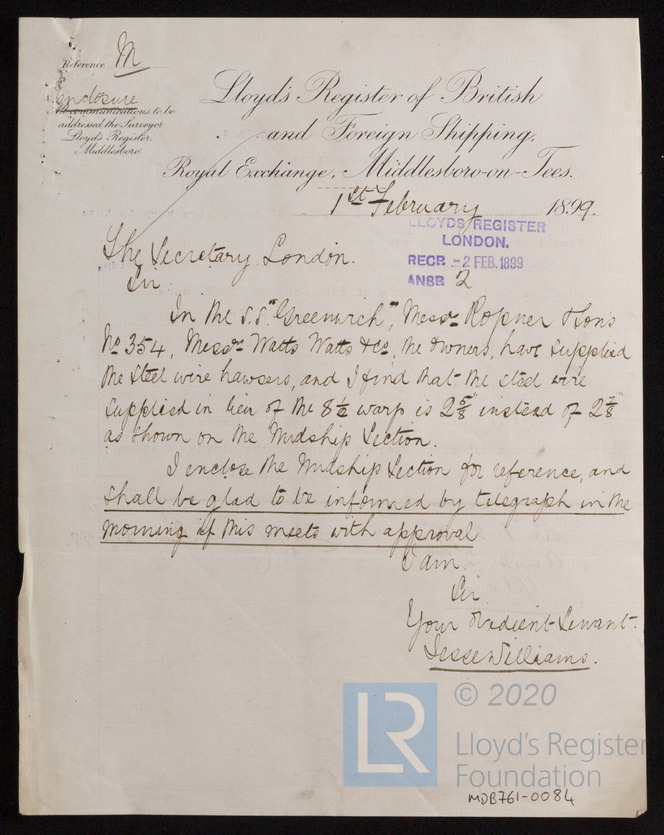 Reference M
enclosure
All communications to be
addressed the Surveyor
Lloyd's Register,
Middlesboro'.
Lloyd's Register of British
and Foreign Shipping.
Royal Exchange, Middlesboro-on-Tees.
1st February 1899.
LLOYDS REGISTER
LONDON.
RECR -2 FEB. 1899
ANSR 2
The Secretary London.
Sir
In the S.S. "Greenwich", Messrs Ropner & Son's
No 354, Messrs Watts Watts & Co, the owners, have supplied
the steel wire hawsers, and I find that the steel wire
supplied in lieu of the 8½ warp is 2⅝" instead of 2⅞"
as shown on the Midship Section.
I enclose the Midship Section for reference, and
shall be glad to be informed by telegraph in the
morning if this meets with approval
I am
Sir
Your obedient Servant.
Jesse Williams.
LR
© 2020
Lloyd's Register
Foundation
MDB761-0084